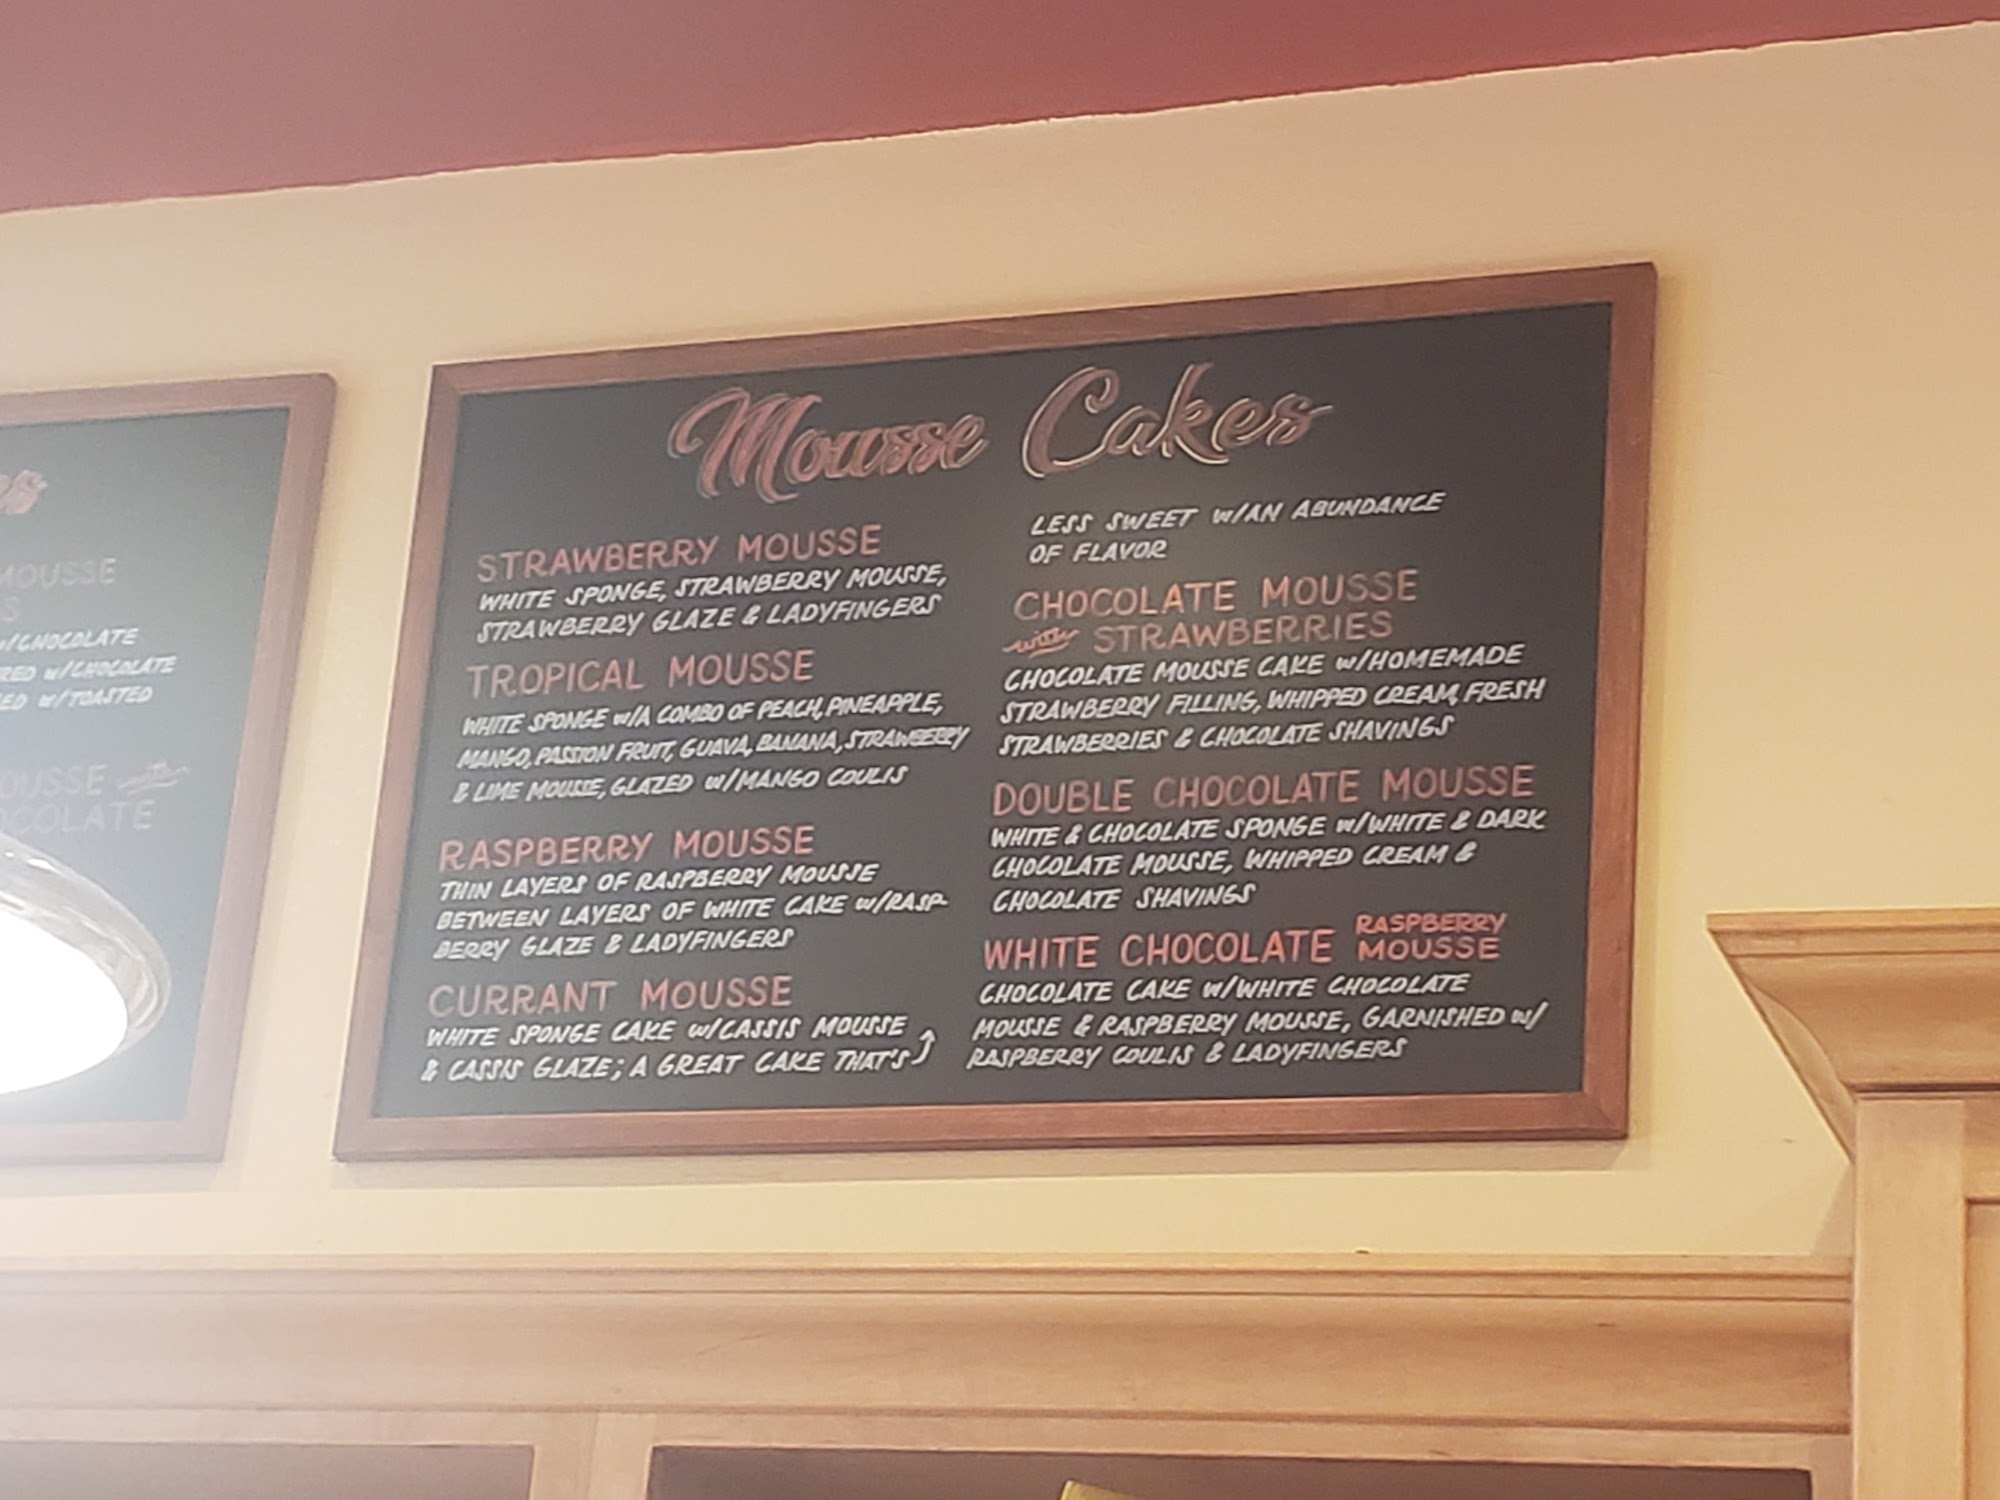 es
MOUSSE
S
w/CHOCOLATE
RED w/CHOCOLATE
ED w/TOASTED
OUSSE with
OCOLATE
Mousse Cakes
STRAWBERRY MOUSSE
WHITE SPONGE, STRAWBERRY MOUSSE,
STRAWBERRY GLAZE & LADYFINGERS
TROPICAL MOUSSE
WHITE SPONGE w/A COMBO OF PEACH, PINEAPPLE,
MANGO, PASSION FRUIT, GUAVA, BANANA, STRAWBERRY
& LIME MOUSSE, GLAZED w/MANGO COULIS
RASPBERRY MOUSSE
THIN LAYERS OF RASPBERRY MOUSSE
BETWEEN LAYERS OF WHITE CAKE w/RASP-
BERRY GLAZE & LADYFINGERS
CURRANT MOUSSE
WHITE SPONGE CAKE w/CASSIS MOUSSE
& CASSIS GLAZE; A GREAT CAKE THAT'S
LESS SWEET w/AN ABUNDANCE
OF FLAVOR
CHOCOLATE MOUSSE
with STRAWBERRIES
CHOCOLATE MOUSSE CAKE w/HOMEMADE
STRAWBERRY FILLING, WHIPPED CREAM, FRESH
STRAWBERRIES & CHOCOLATE SHAVINGS
DOUBLE CHOCOLATE MOUSSE
WHITE & CHOCOLATE SPONGE w/WHITE & DARK
CHOCOLATE MOUSSE, WHIPPED CREAM &
CHOCOLATE SHAVINGS
WHITE CHOCOLATE RASPBERRY MOUSSE
CHOCOLATE CAKE w/WHITE CHOCOLATE
MOUSSE & RASPBERRY MOUSSE, GARNISHED w/
RASPBERRY COULIS & LADYFINGERS